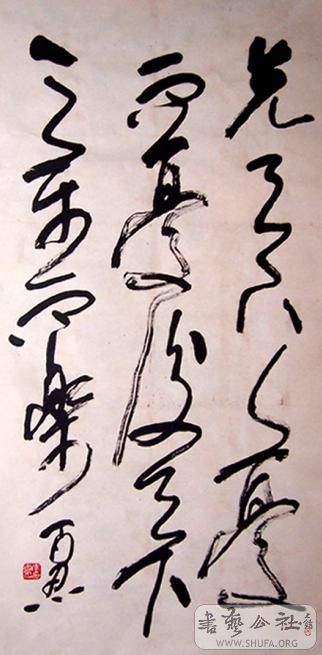 先天下之憂
而憂後天下
之乐而樂
書藝公社
WWW.SHUFA.ORG